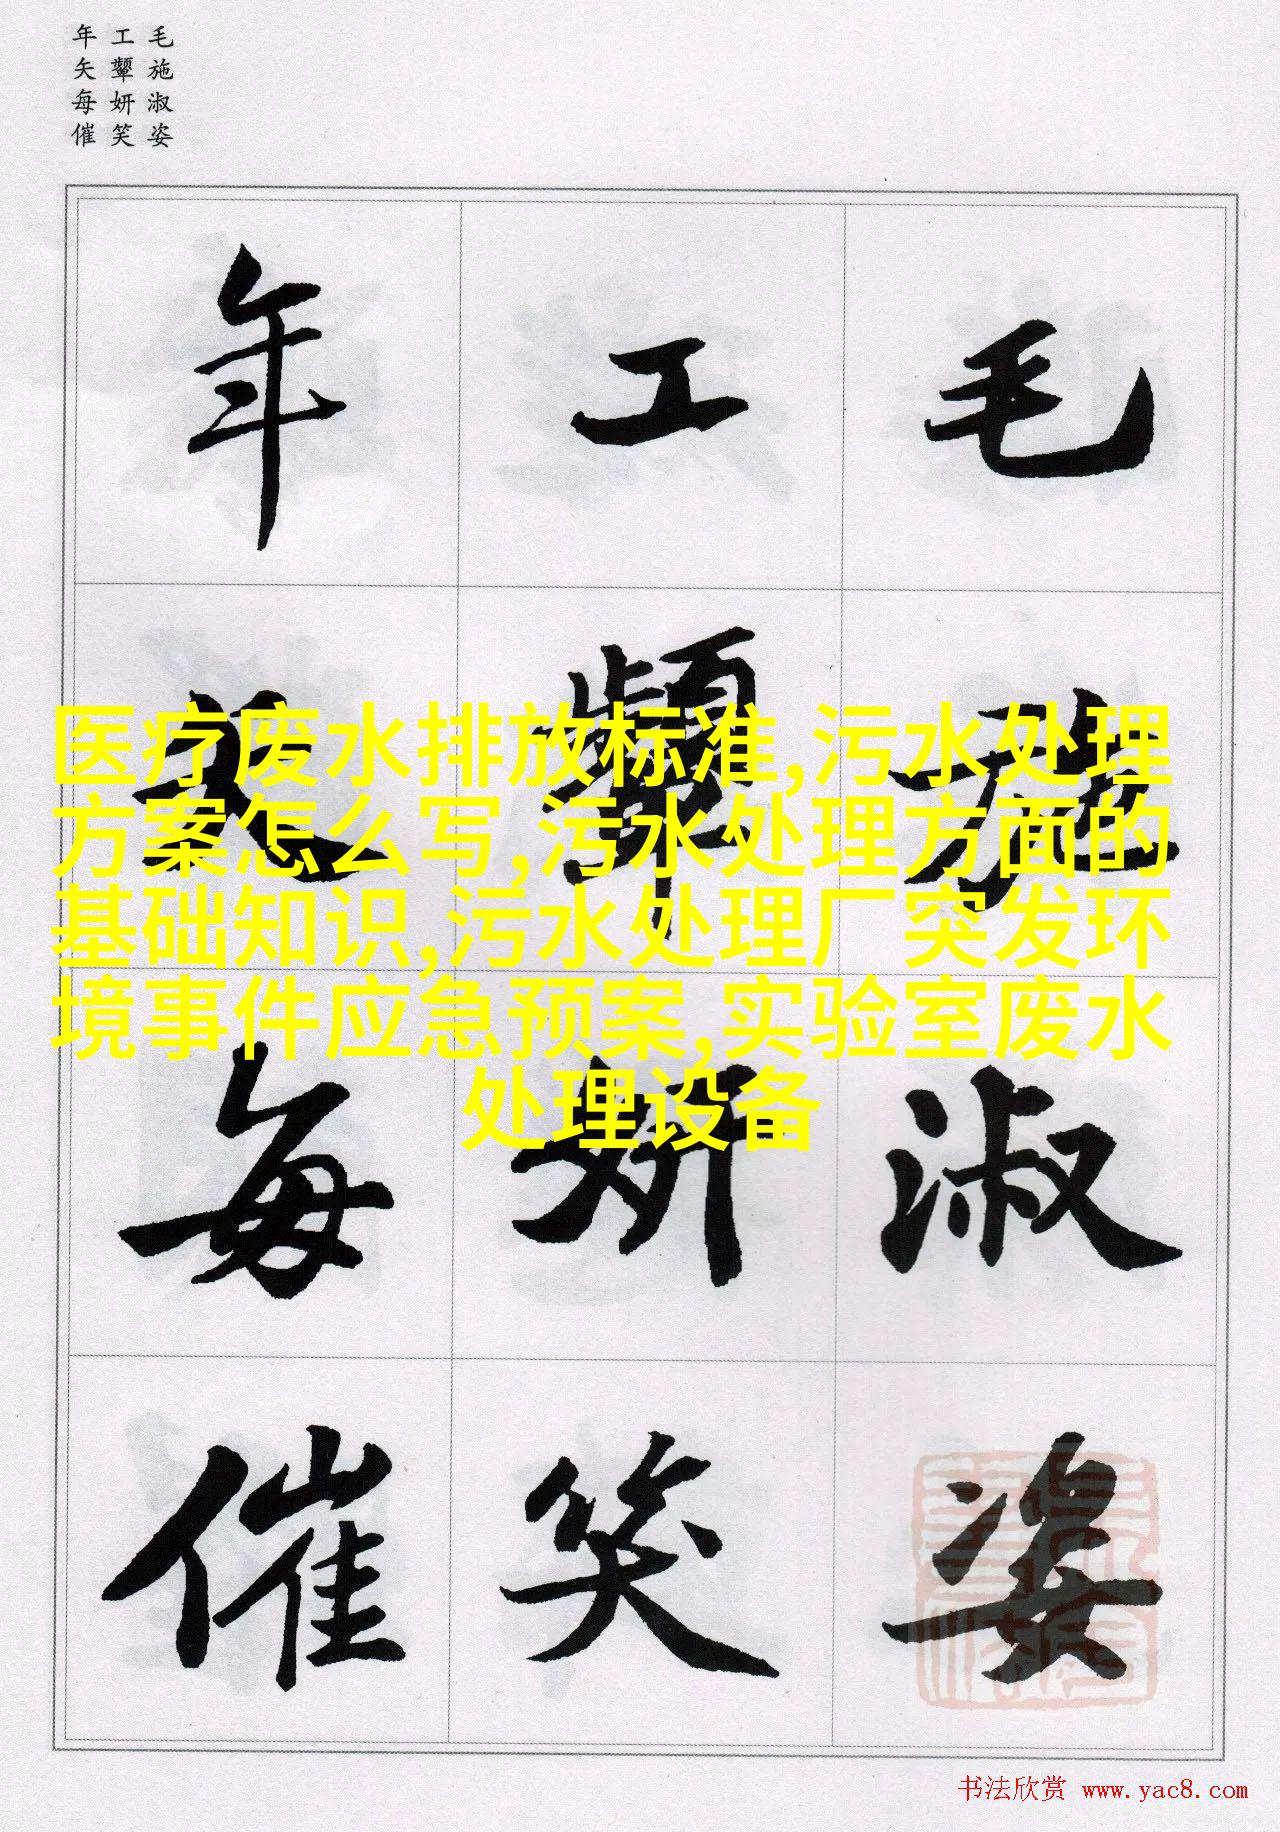 毛施淑姿
工颦妍笑
年矢每催
毛施淑姿
工颦妍笑
年矢每催
医疗废水排放标准,污水处理
方案怎么写,污水处理方面的
基础知识,污水处理厂突发环
境事件应急预案,实验室废水
处理设备
书法欣赏 www.yac8.com